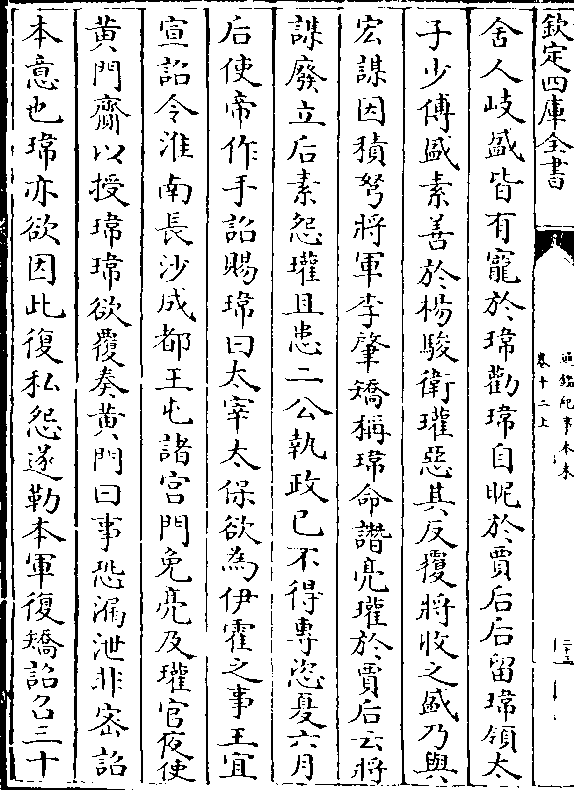 欽定四庫全書
通鑑紀事本末
卷十二上
二十五
舍人岐盛皆有寵於瑋勸瑋自昵於賈后后留瑋領太
子少傅盛素善於楊駿衛瓘惡其反覆將收之盛乃與
宏謀因積弩將軍李肇矯稱瑋命譖亮瓘於賈后云將
謀廢立后素怨瓘且患二公執政已不得專恣夏六月
后使帝作手詔賜瑋曰太宰太保欲為伊霍之事王宜
宣詔令淮南長沙成都王屯諸宮門免亮及瓘官夜使
黄門齎以授瑋瑋欲覆奏黄門曰事恐漏泄非宻詔
本意也瑋亦欲因此復私怨遂勒本軍復矯詔召三十